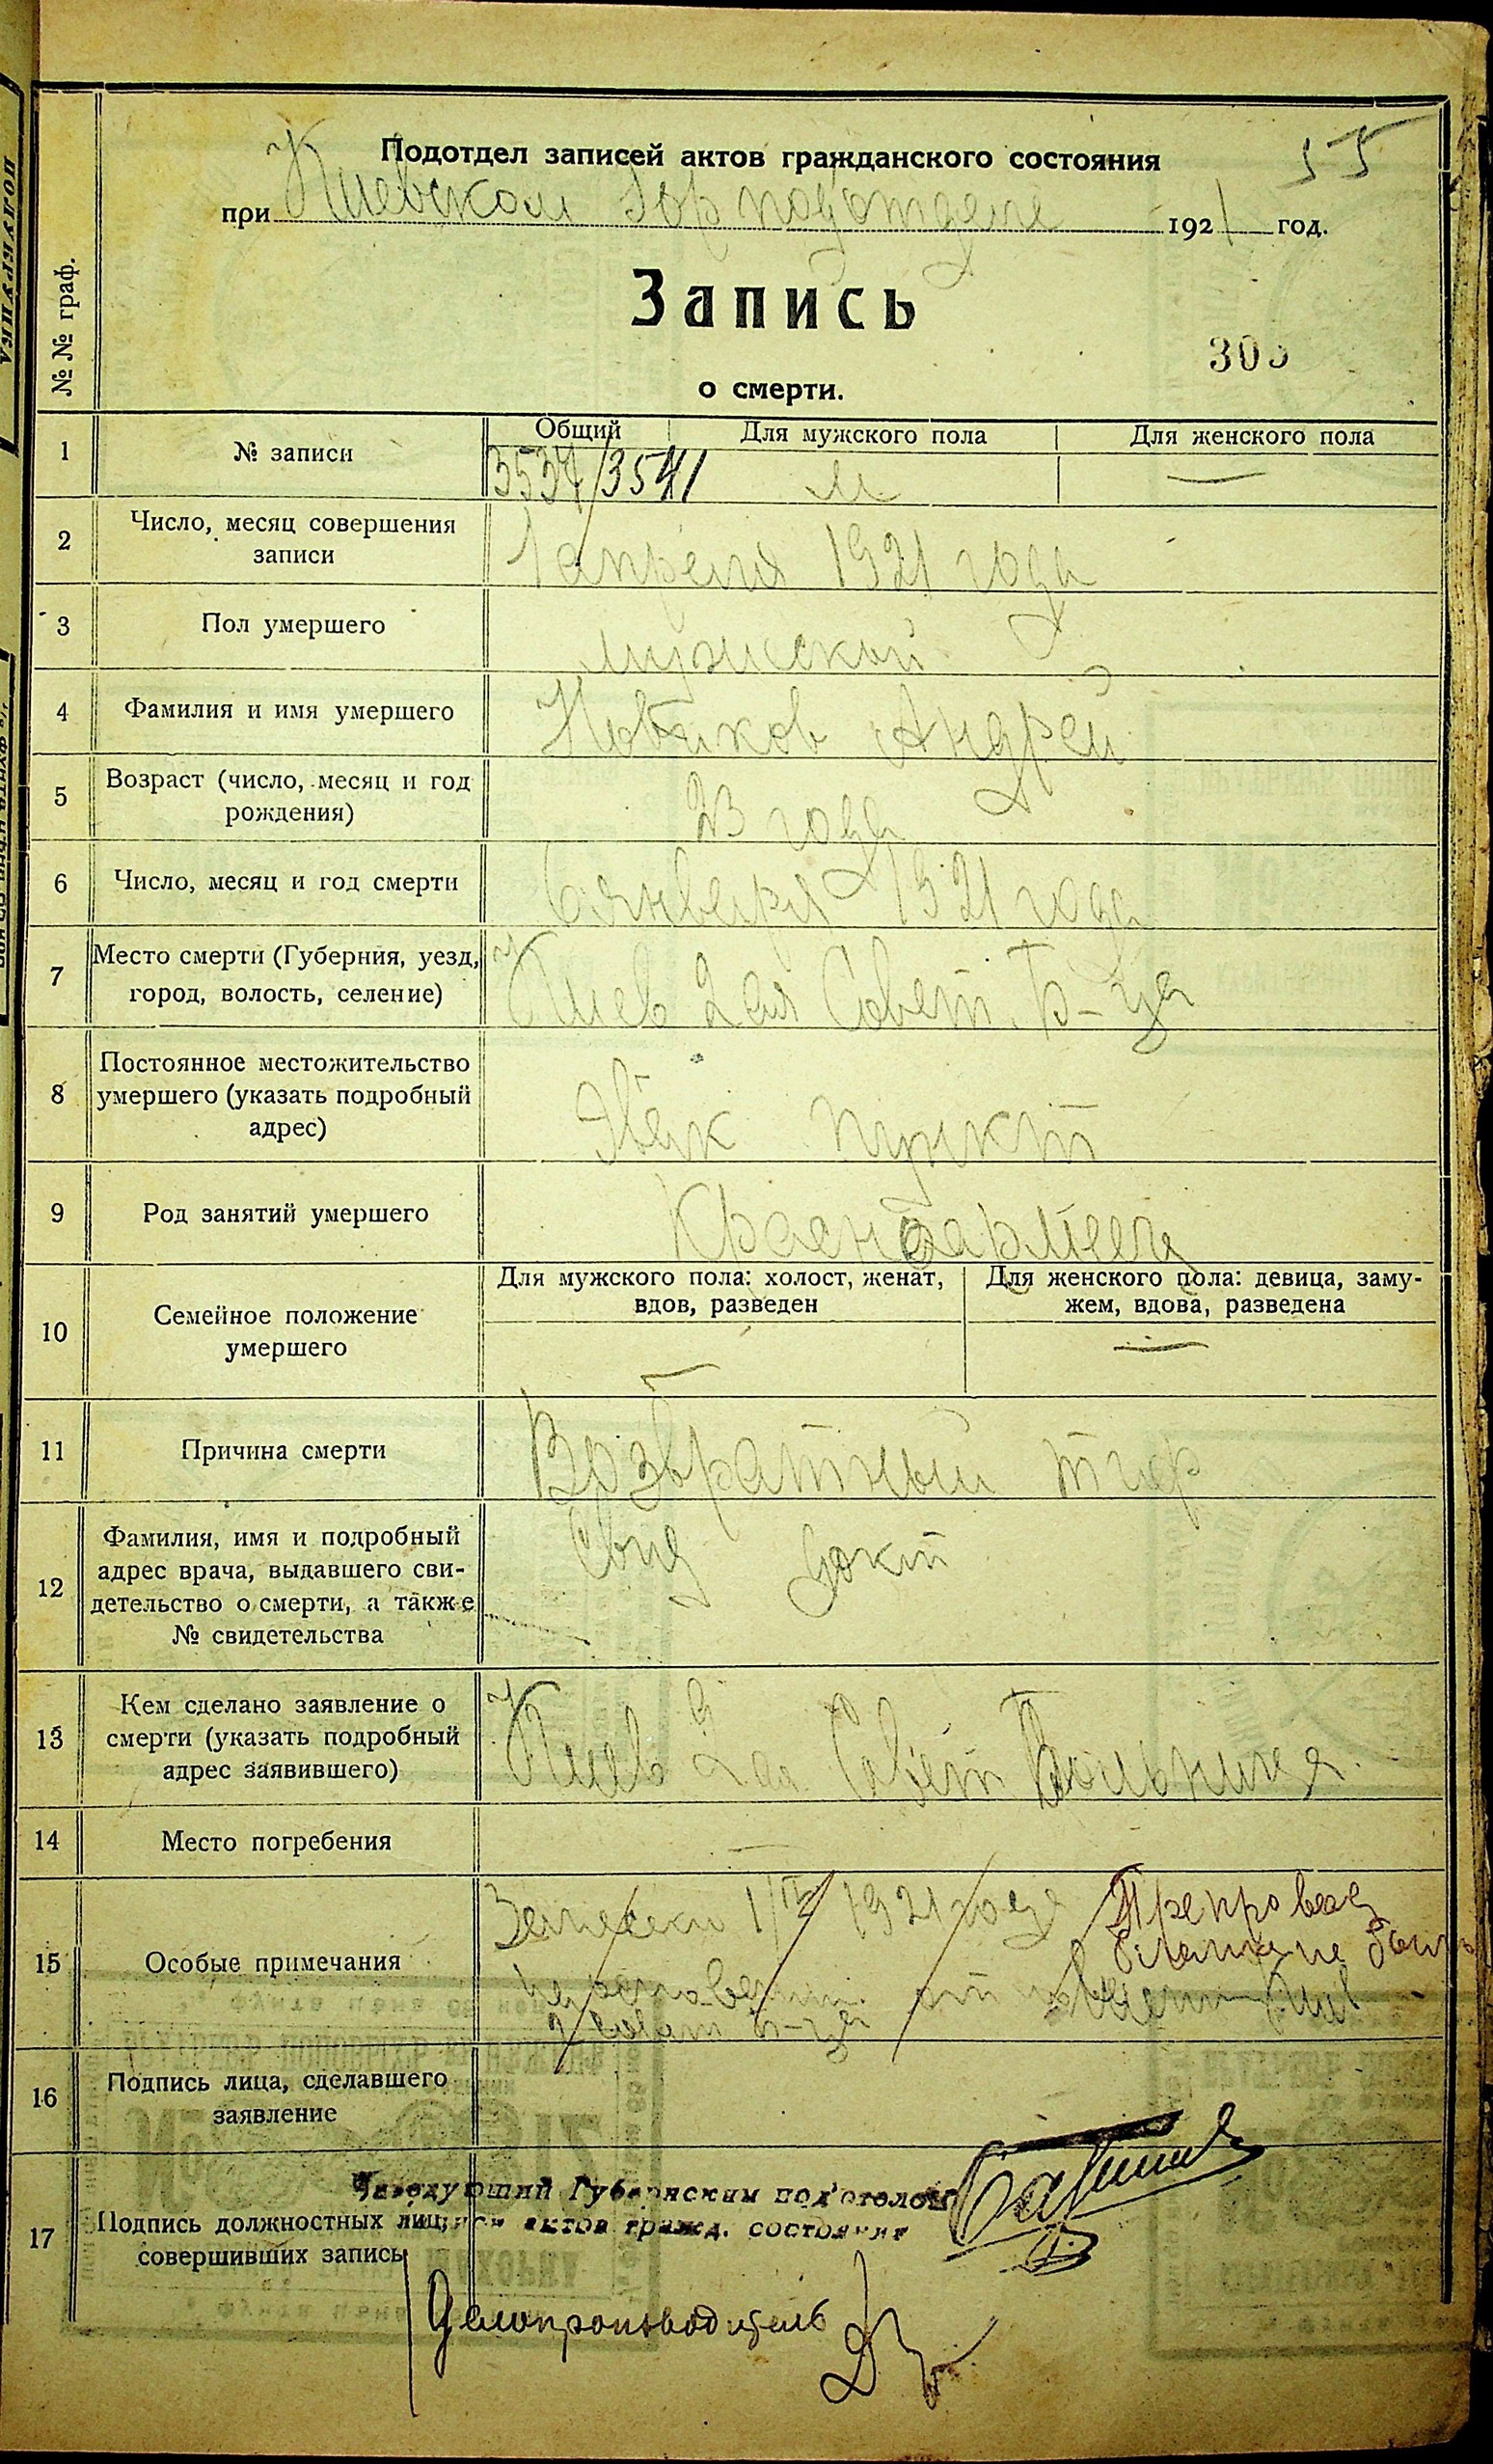 55
Подотдел записей актов гражданского состояния
при Киевском Гор подотделе 1921 год.
№ № граф.
Запись
о смерти.
1 № записи
Общий Для мужского пола Для женского пола
3534/3541 м —
2 Число, месяц совершения
записи
1 апреля 1921 года
3 Пол умершего
мужской
4 Фамилия и имя умершего
Новиков Андрей
5 Возраст (число, месяц и год
рождения)
23 года
6 Число, месяц и год смерти
6 января 1921 года
7 Место смерти (Губерния, уезд,
город, волость, селение)
Киев 2ая Совет. Б-ца
8 Постоянное местожительство
умершего (указать подробный
адрес)
Эвак пункт
9 Род занятий умершего
Красноармеец
10 Семейное положение
умершего
Для мужского пола: холост, женат,
вдов, разведен
Для женского пола: девица, заму-
жем, вдова, разведена
—
11 Причина смерти
Возвратный тиф
12 Фамилия, имя и подробный
адрес врача, выдавшего сви-
детельство о смерти, а также
№ свидетельства
Свид докт
13 Кем сделано заявление о
смерти (указать подробный
адрес заявившего)
Киев 2ая Совет Больница
14 Место погребения
—
15 Особые примечания
1/IV 1921 года
Препровод
2 Совет б-ца
16 Подпись лица, сделавшего
заявление
17 Подпись должностных лиц,
совершивших запись
Заведующий Губернским подотделом
актов гражд. состояния
Делопроизводитель